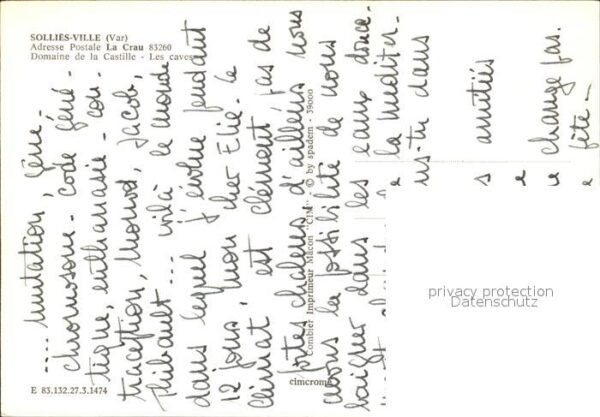 SOLLIÈS-VILLE (Var)
Adresse Postale La Crau 83260
Domaine de la Castille - Les caves
.... mutation, gène -
chromosome - code géné -
tique, euthanasie - con -
traception, Monod, Jacob,
Thibault .... voilà le monde
dans lequel j'évolue pendant
12 jours, mon cher Elie. Le
climat est clément, pas de
fortes chaleurs d'ailleurs nous
avons la possibilité de nous
baigner dans les eaux douce-
e la méditer-
us-tu dans
s amitiés
e
e change pas.
fête -
e
Combier Imprimeur Macon "CIM" - © by spadem - 39000
cimcrome
E 83.132.27.3.1474
privacy protection
Datenschutz